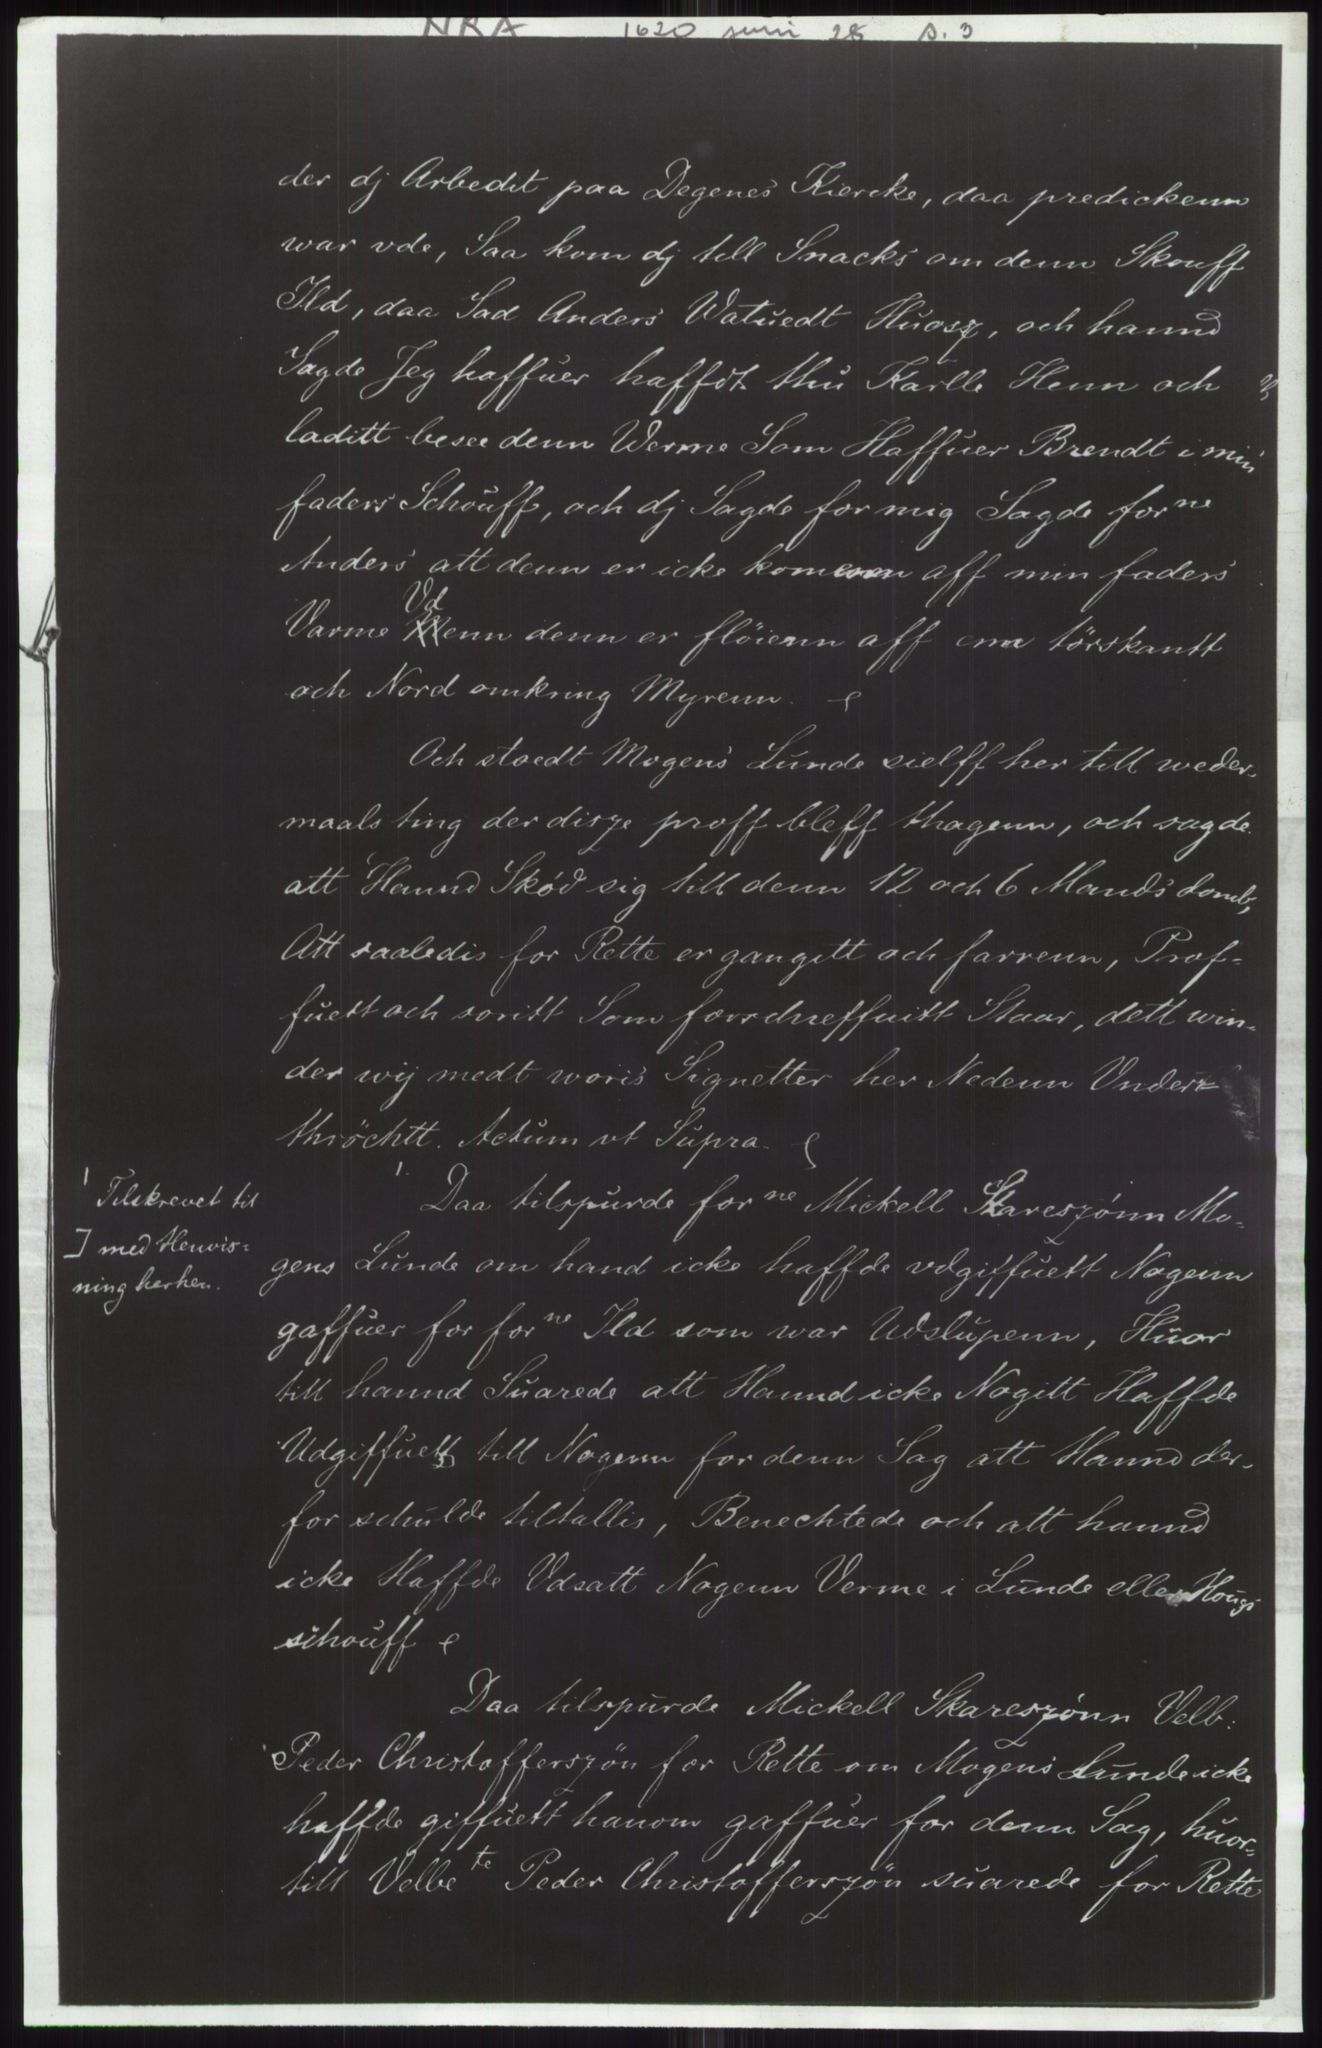 NRA 1620 juni 28 s. 3
der dj Arbedit paa Degenes Kiercke, daa predickenn
war vde, Saa kom dj till Snacks om denn Skouff
Ild, daa Sad Anders Watuedt Huosz, och hannd
Sagde Jeg haffuer haffdt thu Karlle Henn och
laditt besee denn Werme Som Haffuer Brendt i min
faders Schouff, och dj Sagde for mig Sagde forne
Anders att denn er icke kommen aff min faders
Varme Vdenn denn er flöienn aff enn törskantt
och Nord omkring Myrenn.
Och stoedt Mogens Lunde sielff her till weder-
maals ting der disze proff bleff thagenn, och sagde
att Hannd Sköd sig till denn 12 och 6 Mands domb,
Att saaledis for Rette er gangitt och farrenn, Prof-
fuett och voritt Som forschreffuitt Staar, dett win-
der wij medt woris Signetter her Nedenn Under-
thröchtt. Actum vt Supra.
1. Daa tilspurde forne Mickell Skareszönn Mo-
gens Lunde om hand icke haffde vdgiffuett Nogenn
gaffuer for forne Ild som war Udslupenn, Huor
till hannd Suarede att Hannd icke Nogitt Haffde
Udgiffuett till Nogenn for denn Sag att Hannd der-
for schulde tiltallis, Benechtede och att hannd
icke Haffde Vdsatt Nogenn Verme i Lunde eller Hougs
schouff
Daa tilspurde Mickell Skareszönn Velb.
Peder Christofferszön for Rette om Mogens Lunde icke
haffde giffuett hanom gaffuer for denn Sag, huor-
till Velbete Peder Christofferszön suarede for Rette
1 Tilskrevet til
] med Henvis-
ning herhen.